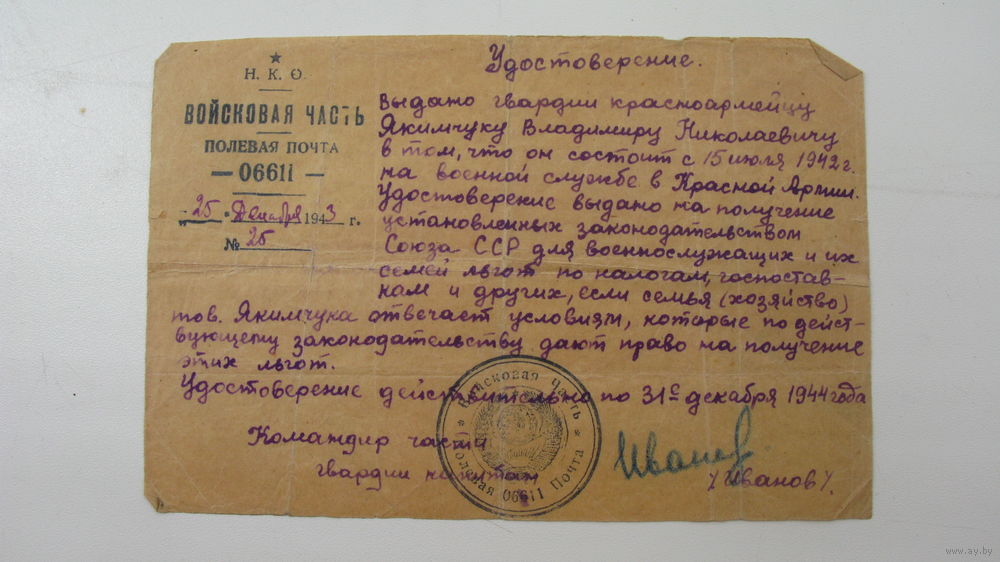 Н. К. О.
ВОЙСКОВАЯ ЧАСТЬ
ПОЛЕВАЯ ПОЧТА
— 06611 —
„25" Декабря 1943 г.
№ 25
Удостоверение.
Выдано гвардии красноармейцу
Якимчуку Владимиру Николаевичу
в том, что он состоит с 15 июля 1942 г.
на военной службе в Красной Армии.
Удостоверение выдано на получение
установленных законодательством
Союза ССР для военнослужащих и их
семей льгот по налогам, госпостав-
кам и других, если семья (хозяйство)
тов. Якимчука отвечает условиям, которые по дейст-
вующему законодательству дают право на получение
этих льгот.
Удостоверение действительно по 31ᵉ декабря 1944 года
Командир части
гвардии капитан
Иванов
/Иванов/.
Войсковая Часть
Полевая 06611 Почта
www.ay.by